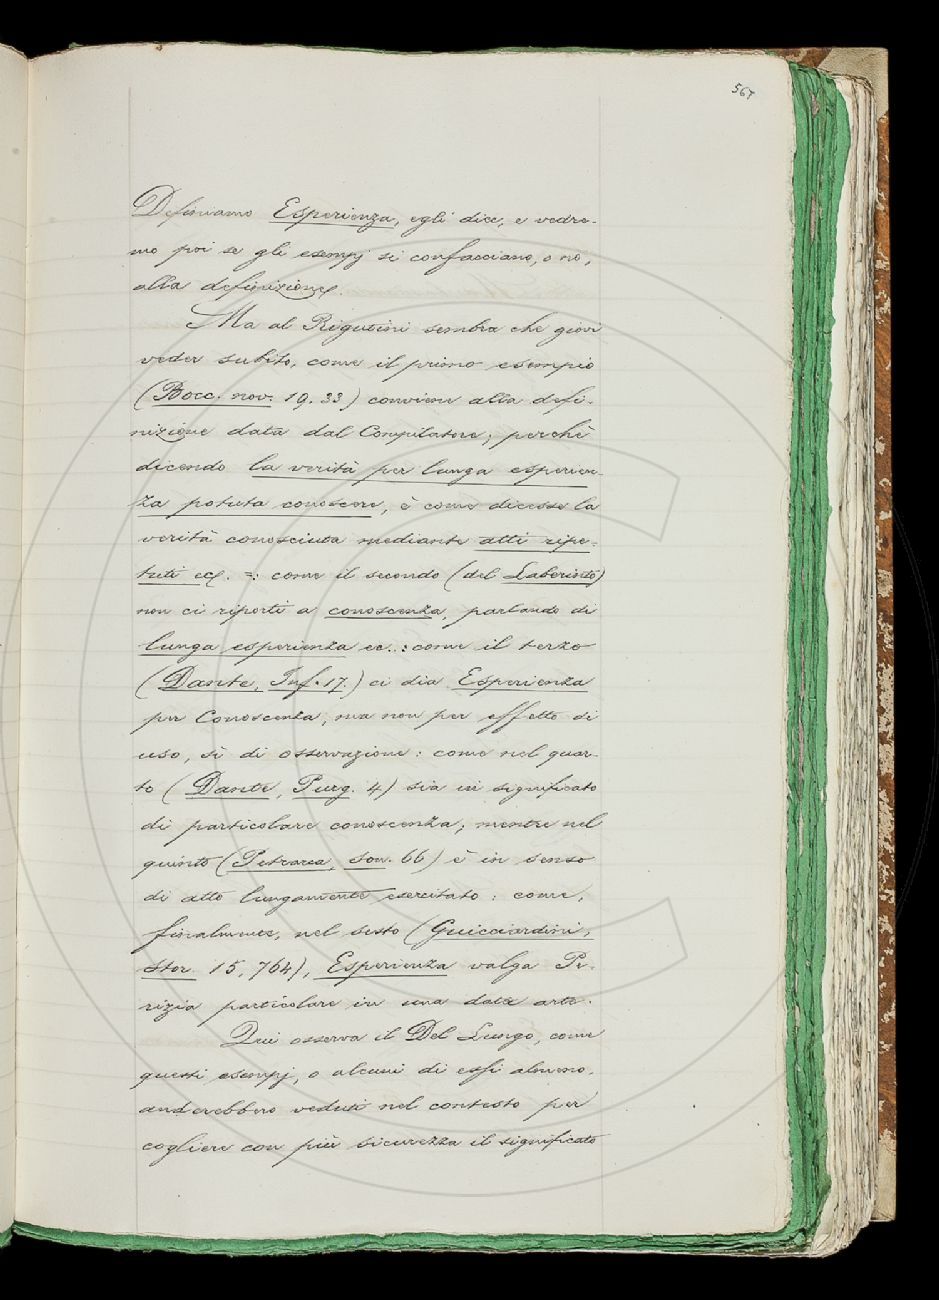 567
Definiamo Esperienza, egli dice, e vedre-
mo poi se gli esempj si confacciano, o no,
alla definizione.
Ma al Rigutini sembra che giovi
veder subito, come il primo esempio
(Bocc. nov. 19. 33) conviene alla defi-
nizione data dal Compilatore; perchè
dicendo la verità per lunga esperien-
za potuta conoscere, è come dicesse la
verità conosciuta mediante atti ripe-
tuti ec. =: come il secondo (del Laberinto)
non ci riporti a conoscenza, parlando di
lunga esperienza ec..: come il terzo
(Dante, Inf. 17.) ci dia Esperienza
per Conoscenza, ma non per effetto di
uso, sì di osservazione: come nel quar-
to (Dante, Purg. 4) sia in significato
di particolare conoscenza; mentre nel
quinto (Petrarca, son. 66) è in senso
di atto lungamente esercitato: come,
finalmente, nel sesto (Guicciardini,
Stor. 15, 764), Esperienza valga Pe-
rizia particolare in una data arte.
Qui osserva il Del Lungo, come
questi esempj, o alcuni di essi almeno,
anderebbero veduti nel contesto per
cogliere con più sicurezza il significato